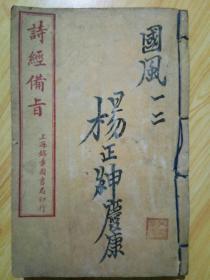 國風一二
楊正紳慶康
詩經備旨
上海錦章圖書局印行